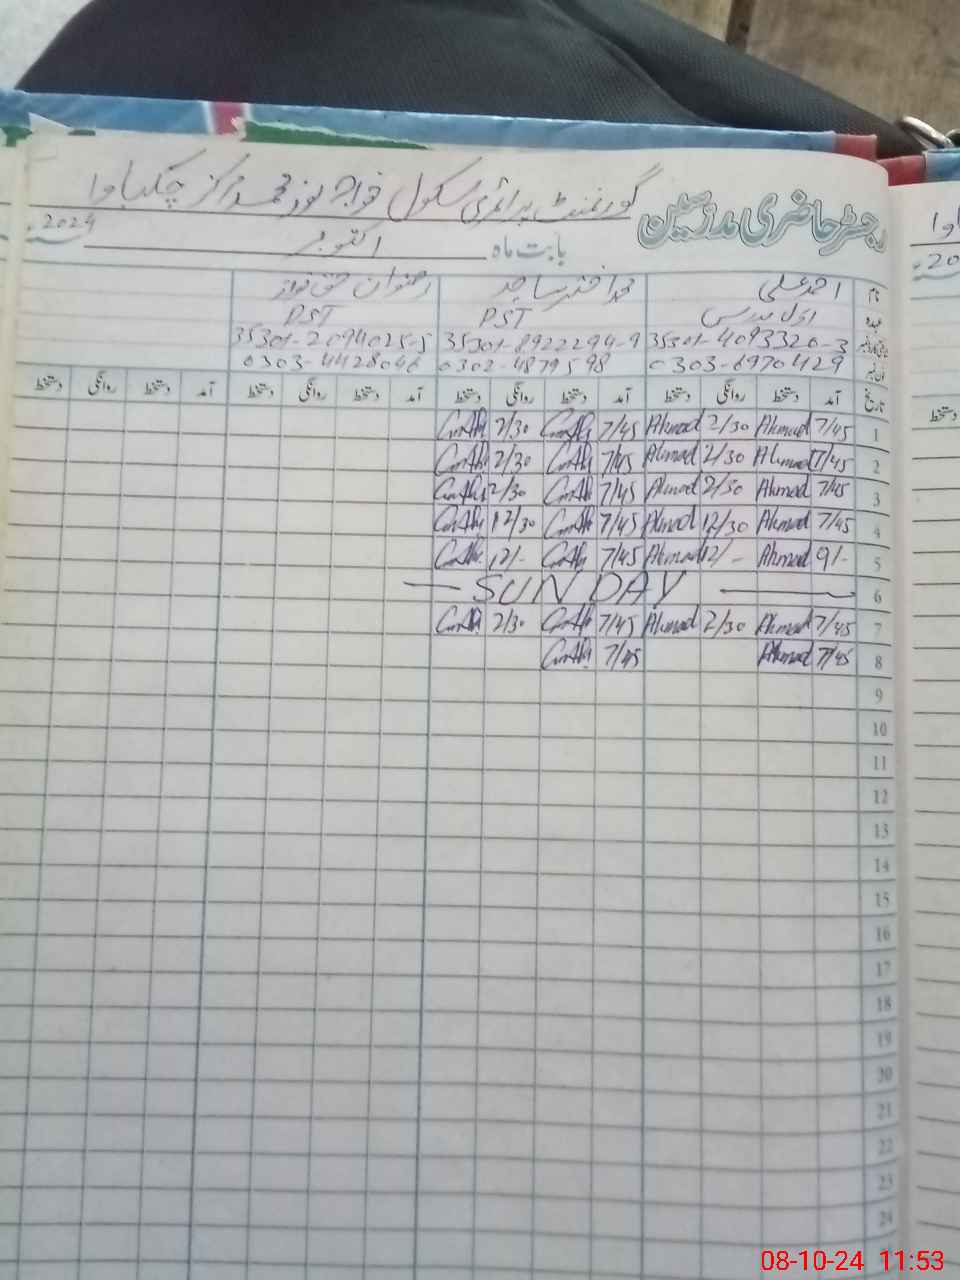 رجسٹر حاضری مدرسین گورنمنٹ پرائمری سکول خواجہ نور محمد مرکز چکباوا
بابت ماہ اکتوبر 2024
نام احمد علی محمد اختر ساجد رضوان حق نواز
عہدہ اول مدرس PST PST
35301-4093320-3 35301-8922294-9 35301-2094025-5
0303-6970429 0302-4879598 0303-4428046
تاریخ آمد دستخط روانگی دستخط آمد دستخط روانگی دستخط آمد دستخط روانگی دستخط آمد دستخط روانگی دستخط
1 7/45 Ahmad 2/30 Ahmad 7/45 2/30
2 7/45 Ahmad 2/30 Ahmad 7/45 2/30
3 7/45 Ahmad 2/30 Ahmad 7/45 2/30
4 7/45 Ahmad 12/30 Ahmad 7/45 12/30
5 9/- Ahmad 12/- Ahmad 7/45 12/-
6 — SUNDAY —
7 7/45 Ahmad 2/30 Ahmad 7/45 2/30
8 7/45 Ahmad 7/45
9
10
11
12
13
14
15
16
17
18
19
20
21
22
23
24
دستخط
08-10-24 11:53